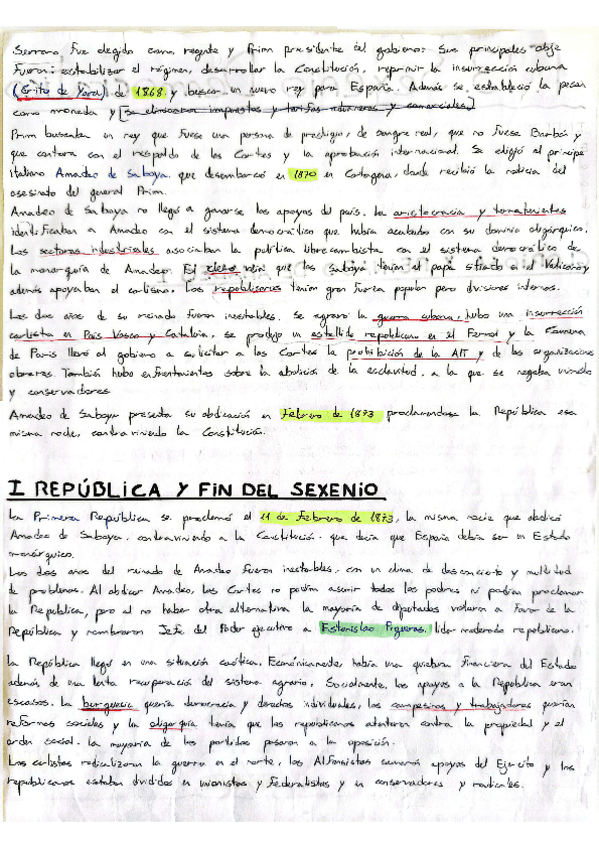 Serrano fue elegido como regente y Prim presidente del gobierno. Sus principales obje
fueron: estabilizar el régimen, desarrollar la Constitución, reprimir la insurrección cubana
(Grito de Yara) de 1868 y buscar un nuevo rey para España. Además se estableció la peseta
como moneda y [se eliminaron impuestos y tarifas aduaneras y comerciales]
Prim buscaba un rey que fuese una persona de prestigio, de sangre real, que no fuese Borbón y
que contara con el respaldo de las Cortes y la aprobación internacional. Se eligió al príncipe
italiano Amadeo de Saboya, que desembarcó en 1870 en Cartagena, donde recibió la noticia del
asesinato del general Prim.
Amadeo de Saboya no llegó a ganarse los apoyos del país. La aristocracia y terratenientes
identificaban a Amadeo con el sistema democrático que había acabado con su dominio oligárquico.
Los sectores industriales asociaban la política librecambista con el sistema democrático de
la monarquía de Amadeo. El clero veía que los Saboya tenían al papa sitiado en el Vaticano y
además apoyaban el carlismo. Los republicanos tenían gran fuerza popular pero divisiones internas.
Los dos años de su reinado fueron inestables. Se agravó la guerra cubana, hubo una insurrección
carlista en País Vasco y Cataluña, se produjo un estallido republicano en el Ferrol y la Comuna
de París llevó al gobierno a solicitar a las Cortes la prohibición de la AIT y de las organizaciones
obreras. También hubo enfrentamientos sobre la abolición de la esclavitud, a la que se negaba
y conservadores
Amadeo de Saboya presenta su abdicación en Febrero de 1873 proclamándose la República esa
misma noche, contraviniendo la Constitución.
I REPÚBLICA Y FIN DEL SEXENIO
La Primera República se proclamó el 11 de Febrero de 1873, la misma noche que abdicó
Amadeo de Saboya, contraviniendo a la Constitución, que decía que España debía ser un Estado
monárquico.
Los dos años del reinado de Amadeo fueron inestables, con un clima de desconcierto y multitud
de problemas. Al abdicar Amadeo, las Cortes no podían asumir todos los poderes ni podían proclamar
la República, pero al no haber otra alternativa la mayoría de diputados votaron a favor de la
República y nombraron Jefe del Poder ejecutivo a Estanislao Figueras, líder moderado republicano.
La República llegó en una situación caótica. Económicamente había una quiebra financiera del Estado
además de una lenta recuperación del sistema agrario. Socialmente, los apoyos a la República eran
escasos. La burguesía quería democracia y derechos individuales, los campesinos y trabajadores querían
reformas sociales y la oligarquía temía que los republicanos atentaran contra la propiedad y el
orden social. La mayoría de los partidos pasaron a la oposición.
Los carlistas radicalizaron la guerra en el norte, los Alfonsistas sumaron apoyos del Ejército y los
republicanos estaban divididos en unionistas y federalistas y en conservadores y radicales.